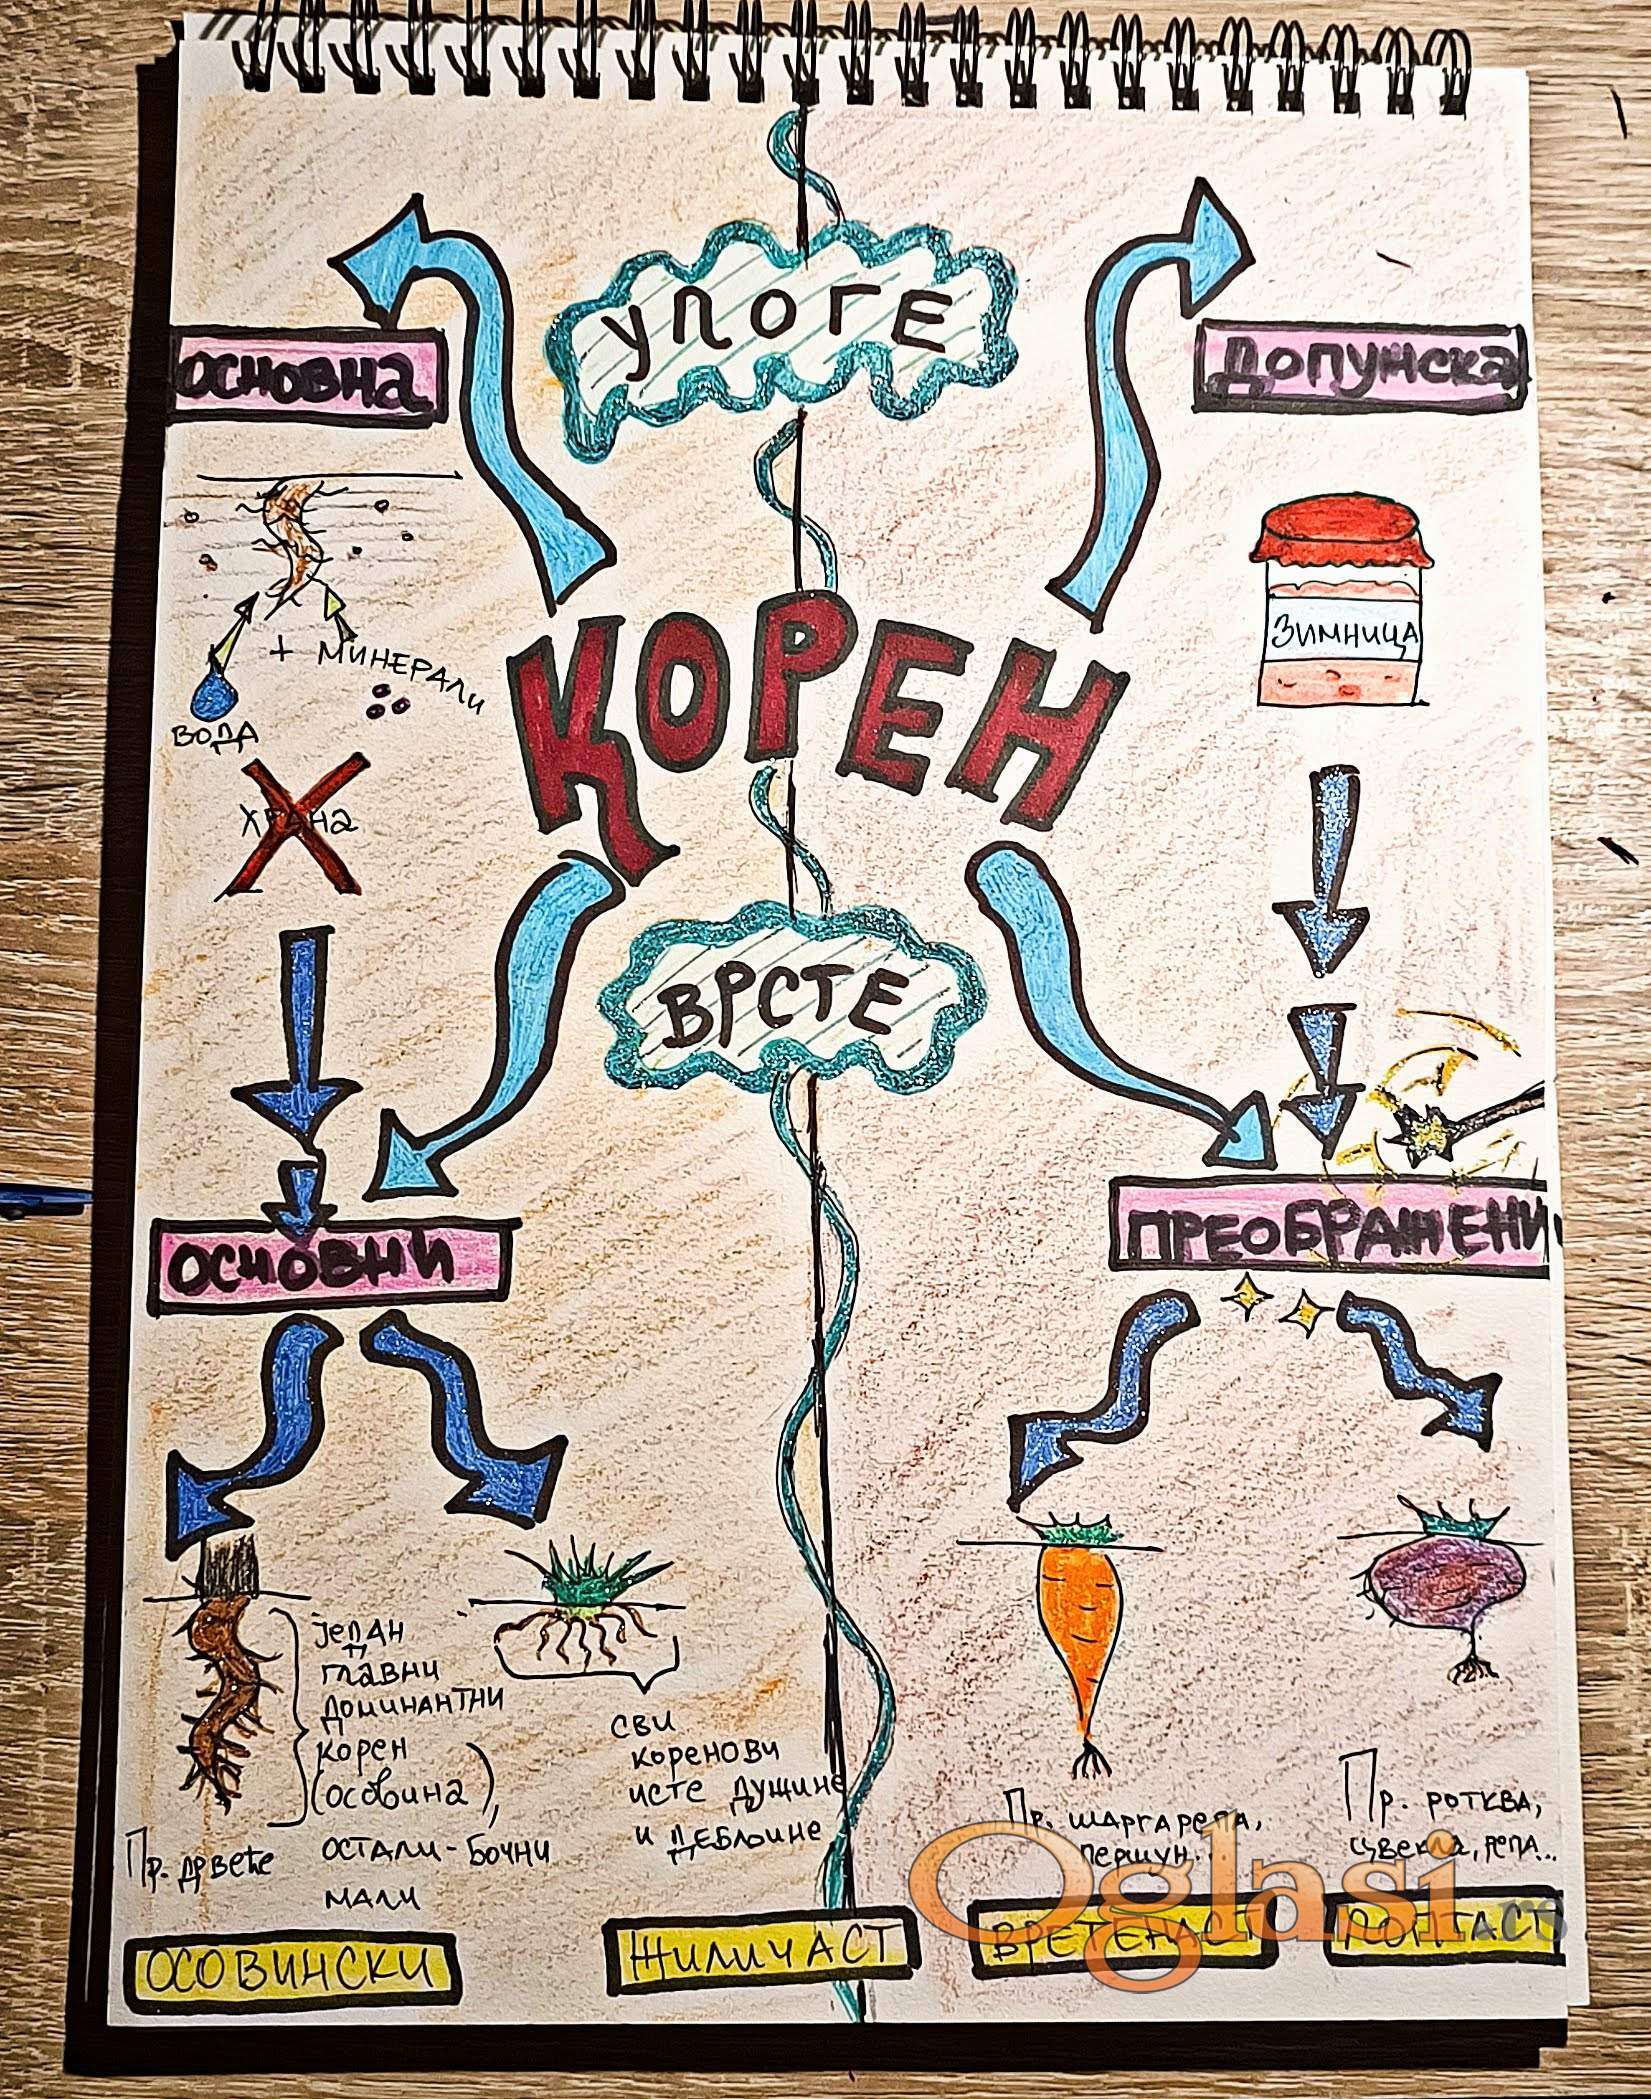 УЛОГЕ
ОСНОВНА
ДОПУНСКА
ЗИМНИЦА
+ МИНЕРАЛИ
ВОДА
ХРАНА
КОРЕН
ВРСТЕ
ОСНОВНИ
ПРЕОБРАЖЕНИ
један
главни
доминантни
корен
(осовина),
остали-бочни
мали
Пр. дрвеће
сви
коренови
исте дужине
и дебљине
Пр. шаргарепа,
першун...
Пр. ротква,
цвекла, репа...
ОСОВИНСКИ
ЖИЛИЧАСТ
ВРЕТЕНАСТ
ЛОПТАСТ
Oglasi.rs